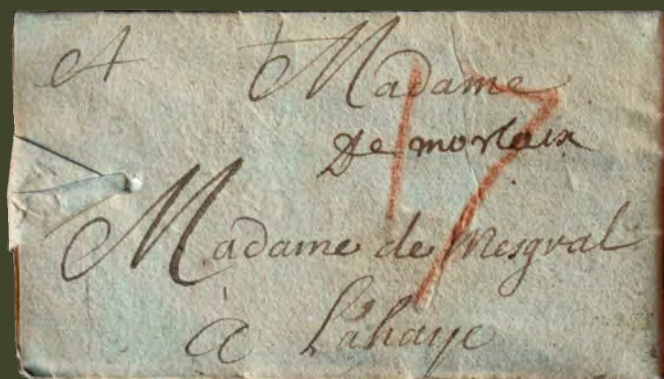 A Madame
De morlaix
17
Madame de Mesgral
à Lahaye